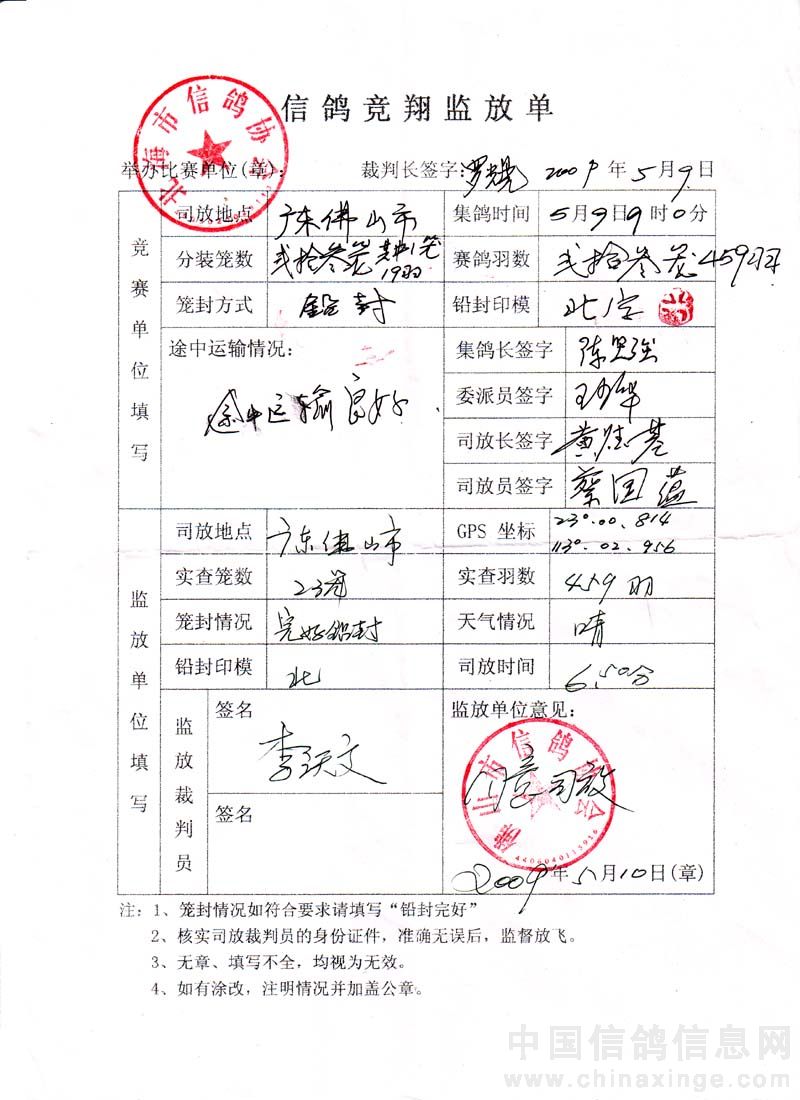 信鸽竞翔监放单
北海市信鸽协会
举办比赛单位(章): 裁判长签字: 2009年5月9日
竞赛单位填写
司放地点 广东佛山市 集鸽时间 5月9日9时0分
分装笼数 贰拾叁笼 其中1笼19羽 赛鸽羽数 贰拾叁笼459羽
笼封方式 铅封 铅封印模 北字
途中运输情况:
途中运输良好.
集鸽长签字 陈思强
委派员签字
司放长签字 黄陆基
司放员签字 蔡国蕴
监放单位填写
司放地点 广东佛山市 GPS 坐标 23°.00.814
113°.02.956
实查笼数 23笼 实查羽数 459羽
笼封情况 完好铅封 天气情况 晴
铅封印模 北 司放时间 6.50分
监放裁判员
签名 李天文
签名
监放单位意见:
佛山市信鸽协会
同意司放
4406040115916
2009年5月10日(章)
注: 1、笼封情况如符合要求请填写“铅封完好”
2、核实司放裁判员的身份证件，准确无误后，监督放飞。
3、无章、填写不全，均视为无效。
4、如有涂改，注明情况并加盖公章。
中国信鸽信息网
www.chinaxinge.com